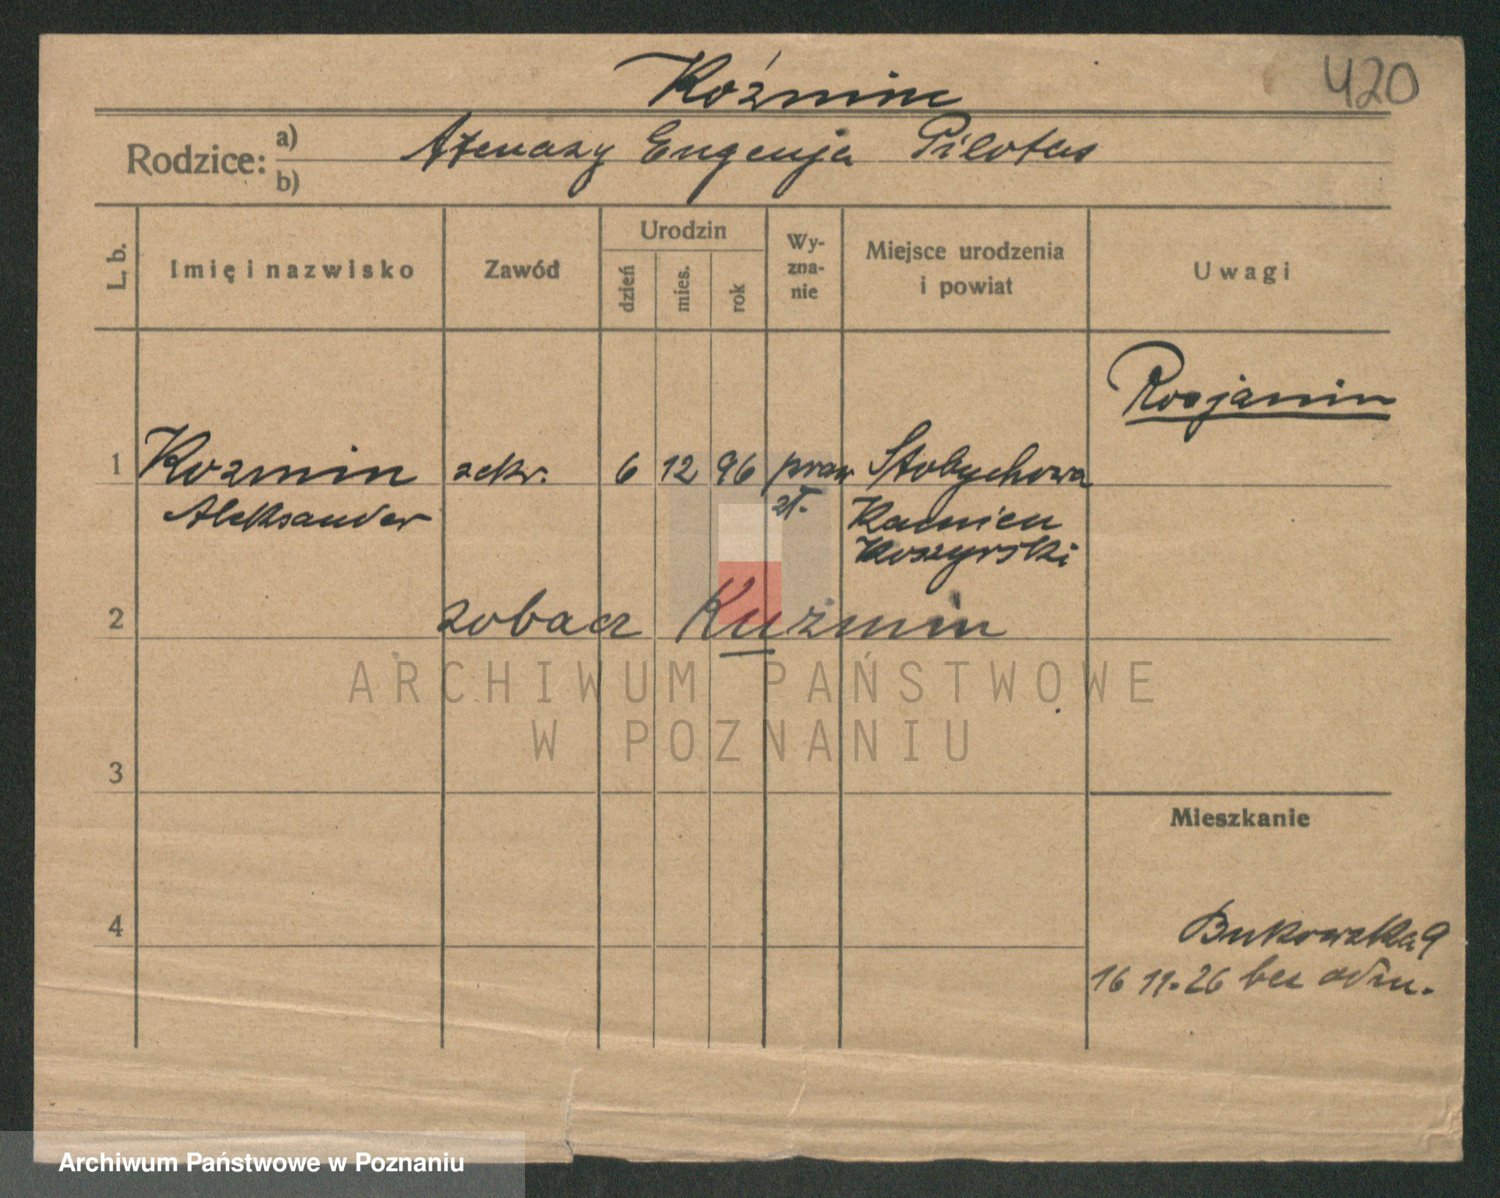 420
Koźmin
Rodzice: a) b)
Atenazy Eugenja Pilotas
L. b.
Imię i nazwisko
Zawód
Urodzin
dzień
mies.
rok
Wy-
zna-
nie
Miejsce urodzenia
i powiat
Uwagi
Rosjanin
1 Kozmin sekr. 6 12 96 praw Stobychowa
Aleksander sł. Kamień
Koszyrski
2 zobacz Kuźmin
ARCHIWUM PAŃSTWOWE
W POZNANIU
3
Mieszkanie
4
Bukowska 9
16 11.26 bez odm.
Archiwum Państwowe w Poznaniu